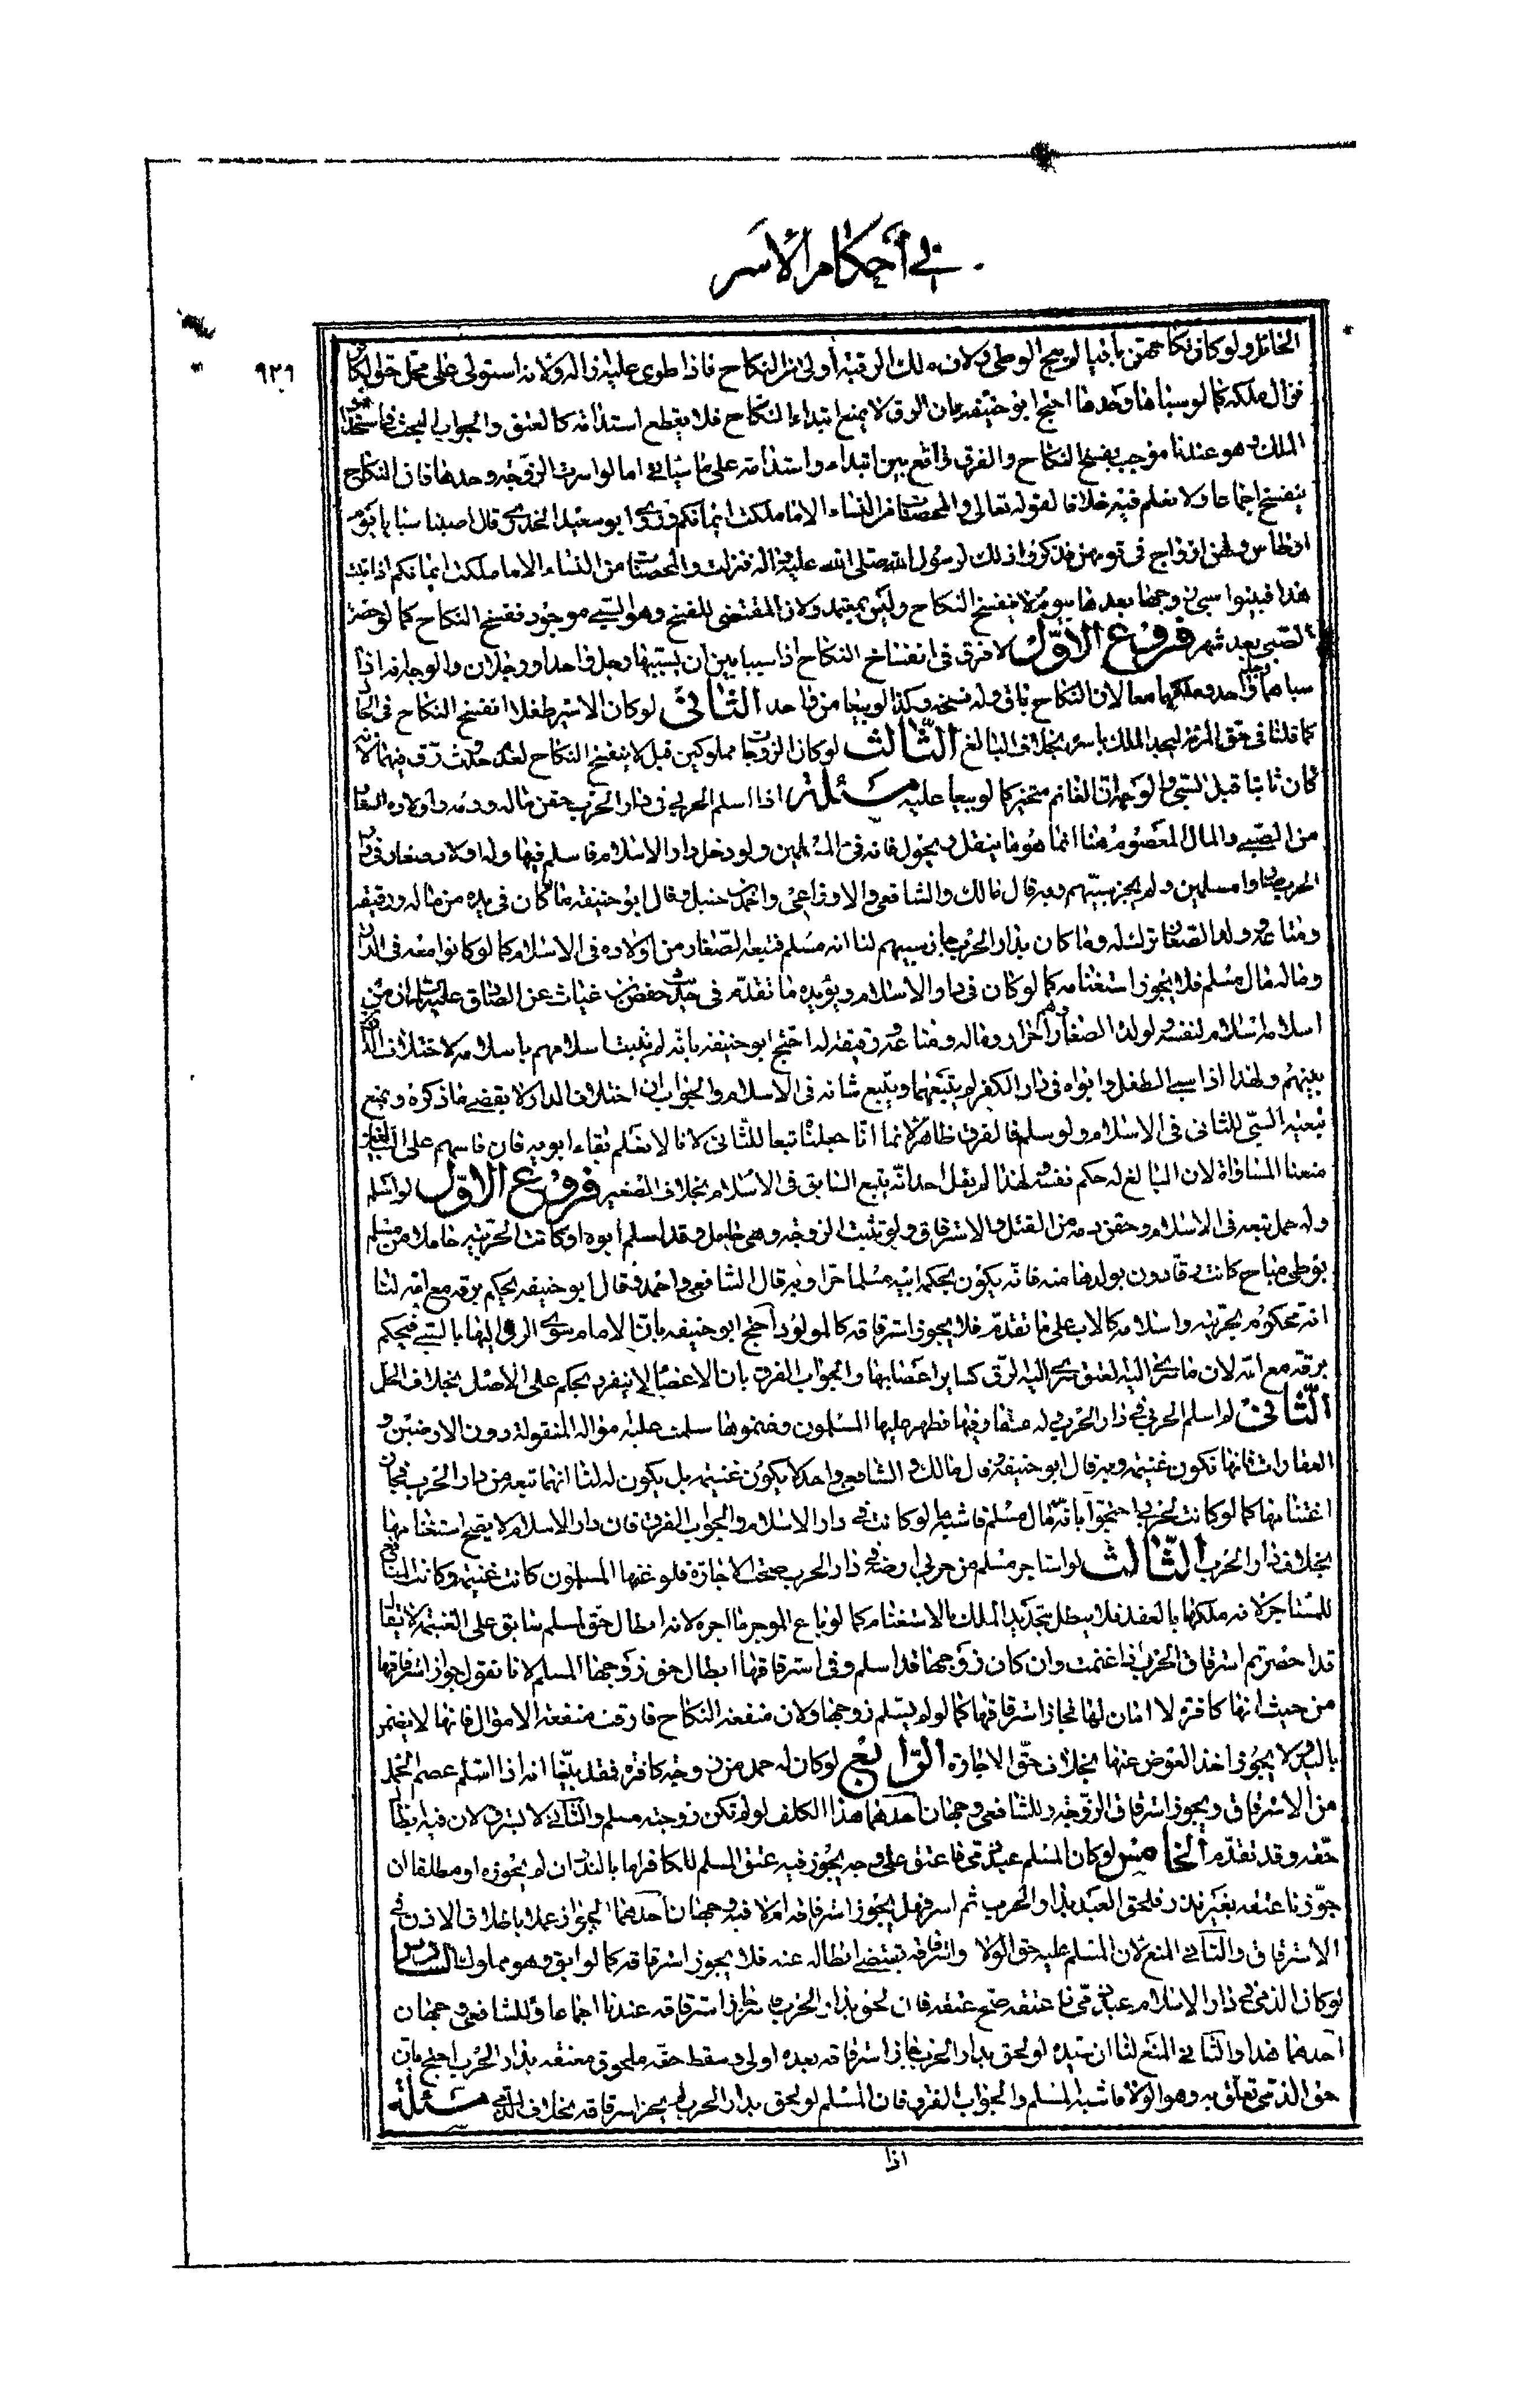 في أحكام الأسر
٩٢٩
الحائل ولو كان نكاحهن باقيا لم يبح الوطي ولان ملك الرقبة أولى من النكاح فاذا طرى عليه زاله ولانه استولى على محل حق الكافر
فزال ملكه كما لو سباها وحدها احتج ابو حنيفة بان الرق لا يمنع ابتداء النكاح فلا يقطع استدامته كالعتق والجواب البحث في استحداث
الملك وهو عندنا موجب لفسخ النكاح والفرق واقع بين ابتداء واستدامة على ما سياتي اما لو اسرت الزوجة وحدها فان النكاح
ينفسخ اجماعا ولا نعلم فيه خلافا لقوله تعالى والمحصنات من النساء الا ما ملكت ايمانكم وروى ابو سعيد الخدري قال اصبنا سبايا يوم
اوطاس ولهن ازواج في قومهن فذكروا ذلك لرسول الله صلى الله عليه واله فنزلت والمحصنات من النساء الا ما ملكت ايمانكم اذا ثبت
هذا فبينوا سبي زوجها بعدها بيوم لا ينفسخ النكاح وليس بمعتمد ولان المقتضي للفسخ وهو السبي موجود ففسخ النكاح كما لو
السبي بعد شهر فروع الاول لا فرق في انفساخ النكاح اذا سبيا بين ان يسبيها رجل واحد او رجلان والوجه انه اذا
سباهما رجل واحد وملكهما معا لان النكاح باق وله فسخه وكذا لو بيعا من واحد الثاني لو كان الاسير طفلا انفسخ النكاح في الحال
كما قلنا في حق المرأة لتجدد الملك باسره بخلاف البالغ الثالث لو كان الزوجان مملوكين قيل لا ينفسخ النكاح لعدم حدوث رق فيهما لانه
كان ثابتا قبل السبي والوجه ان الغانم متخير كما لو بيعا عليه مسئلة اذا اسلم الحربي في دار الحرب حقن ماله ودمه واولاده الصغار
من السبي والمال المعصوم هنا انما هو ما ينقل ويحول فانه في المسلمين ولو دخل دار الاسلام فاسلم فيها وله اولاد صغار في دار
الحرب صاروا مسلمين ولم يجز سبيهم وبه قال مالك والشافعي والاوزاعي واحمد بن حنبل وقال ابو حنيفة ما كان في يده من ماله ورقيقه
ومتاعه وولده الصغار ترك له وما كان بدار الحرب جاز سبيهم لنا انه مسلم فتبعه الصغار من اولاده في الاسلام كما لو كانوا معه في الدار
وماله مال مسلم فلا يجوز استغنامه كما لو كان في دار الاسلام ويؤيده ما تقدم في حديث حفص بن غياث عن الصادق عليه السلام ان من
اسلامه اسلام لنفسه ولولده الصغار وهم احرار وماله ومتاعه ورقيقه له احتج ابو حنيفة بانه لم يثبت اسلامهم باسلامه لاختلاف الدارين
بينهم ولهذا اذا سبي الطفل وابواه في دار الكفر لم يتبعهما ويتبع سابيه في الاسلام والجواب ان اختلاف الدار لا يقضي ما ذكره ونمنع
تبعية السبي للثاني في الاسلام ولو سلم فالفرق ظاهر لانما انا جعلناه تبعا للثاني لانا لا نعلم بقاء ابويه فان قاسهم على البالغين
منعنا المساواة لان البالغ له حكم نفسه لهذا لم يقل احد انه يتبع السابي في الاسلام بخلاف الصغير فروع الاول لو اسلم
وله حمل تبعه في الاسلام وحقن دمه من القتل والاسترقاق ولو سبيت الزوجة وهي حامل وقد اسلم ابوه او كانت الحربية حاملا من مسلم
بوطي مباح كانت رقا دون ولدها منه فانه يكون بحكم ابيه مسلما حرا وبه قال الشافعي واحمد وقال ابو حنيفة يحكم برقه مع امه لنا
انه محكوم بحريته واسلامه كالاب على ما تقدم فلا يجوز استرقاقه كالمولود احتج ابو حنيفة بان الامام سرى الرق اليها بالسبي فيحكم
برقه مع امه لان ما سرى اليه العتق سرى اليه الرق كساير اعضائها والجواب الفرق بان الاعضاء لا ينفرد بحكم على الاصل بخلاف الحمل
الثاني لو اسلم الحربي في دار الحرب وله عقار فيها فظهر عليها المسلمون وغنموها سلمت عليه امواله المنقولة دون الارضين و
العقارات فانها تكون غنيمة وبه قال ابو حنيفة وقال مالك والشافعي واحمد لا يكون غنيمة بل يكون له لنا انها تبعه من دار الحرب فجاز
اغتنامها كما لو كانت لحربي احتجوا بانه مال مسلم فاشبه ما لو كانت في دار الاسلام والجواب الفرق فان دار الاسلام لا يصح استغنامها
بخلاف دار الحرب الثالث لو استاجر مسلم من حربي ارضا في دار الحرب صحت الاجارة فلو غنمها المسلمون كانت غنيمة وكانت المنافع
للمستاجر لانه ملكها بالعقد فلا يبطل بتجديد الملك بالاستغنام كما لو باع الموجر ما اجره لانه ابطال حق المسلم سابق على الغنيمة لا يقال
قد احضرتم استرقاق الحربية اذا غنمت وان كان زوجها قد اسلم وفي استرقاقها ابطال حق زوجها المسلم لانا نقول جواز استرقاقها
من حيث انها كافرة لا امان لها فجاز استرقاقها كما لو لم يسلم زوجها ولان منفعة النكاح فارقت منفعة الاموال فانها لا يضمن
باليد ولا يجوز اخذ العوض عنها بخلاف حق الاجارة الرابع لو كان له حمل من زوجة كافرة فقد بينا انه اذا اسلم عصم الحمل
من الاسترقاق ويجوز استرقاق الزوجة وللشافعي وجهان احدهما هذا الكلف لو لم تكن زوجته مسلم والثاني لا يسترق لان فيه ابطال
حقه وقد تقدم الخامس لو كان المسلم عبد ذمي فاعتق على وجه يجوز فيه عتق المسلم للكافر اما بالنذر ان لم يجوزه او مطلقا ان
جوزنا عتقه بغير نذر فلحق العبد بدار الحرب ثم اسر فهل يجوز استرقاقه ام لا فيه وجهان احدهما الجواز عملا باطلاق الاذن في
الاسترقاق والثاني المنع لان المسلم عليه حق الولاء واسترقاقه يقتضي ابطاله عنه فلا يجوز استرقاقه كما لو ابق وهو مملوك السادس
لو كان الذمي في دار الاسلام عبد ذمي فاعتقه صح عتقه فان لحق بدار الحرب فاسر جاز استرقاقه عندنا اجماعا وللشافعي وجهان
احدهما هذا والثاني المنع لنا ان سيده لو لحق بدار الحرب جاز استرقاقه بعده اولى وسقط حقه ملحوق معتقه بدار الحرب احتج بان
حق الذمي تعلق به وهو الولاء فاشبه المسلم والجواب الفرق فان المسلم لو لحق بدار الحرب لم يجز استرقاقه بخلاف الذمي مسئلة
اذا